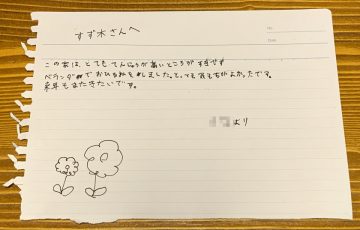 すず木さんへ
No.
Date
この本は、とても、てんじょうが高いところが すきです
ベランダでおひるねをしました。とっても気もちがよかったです。
来年もまたきたいです。
より